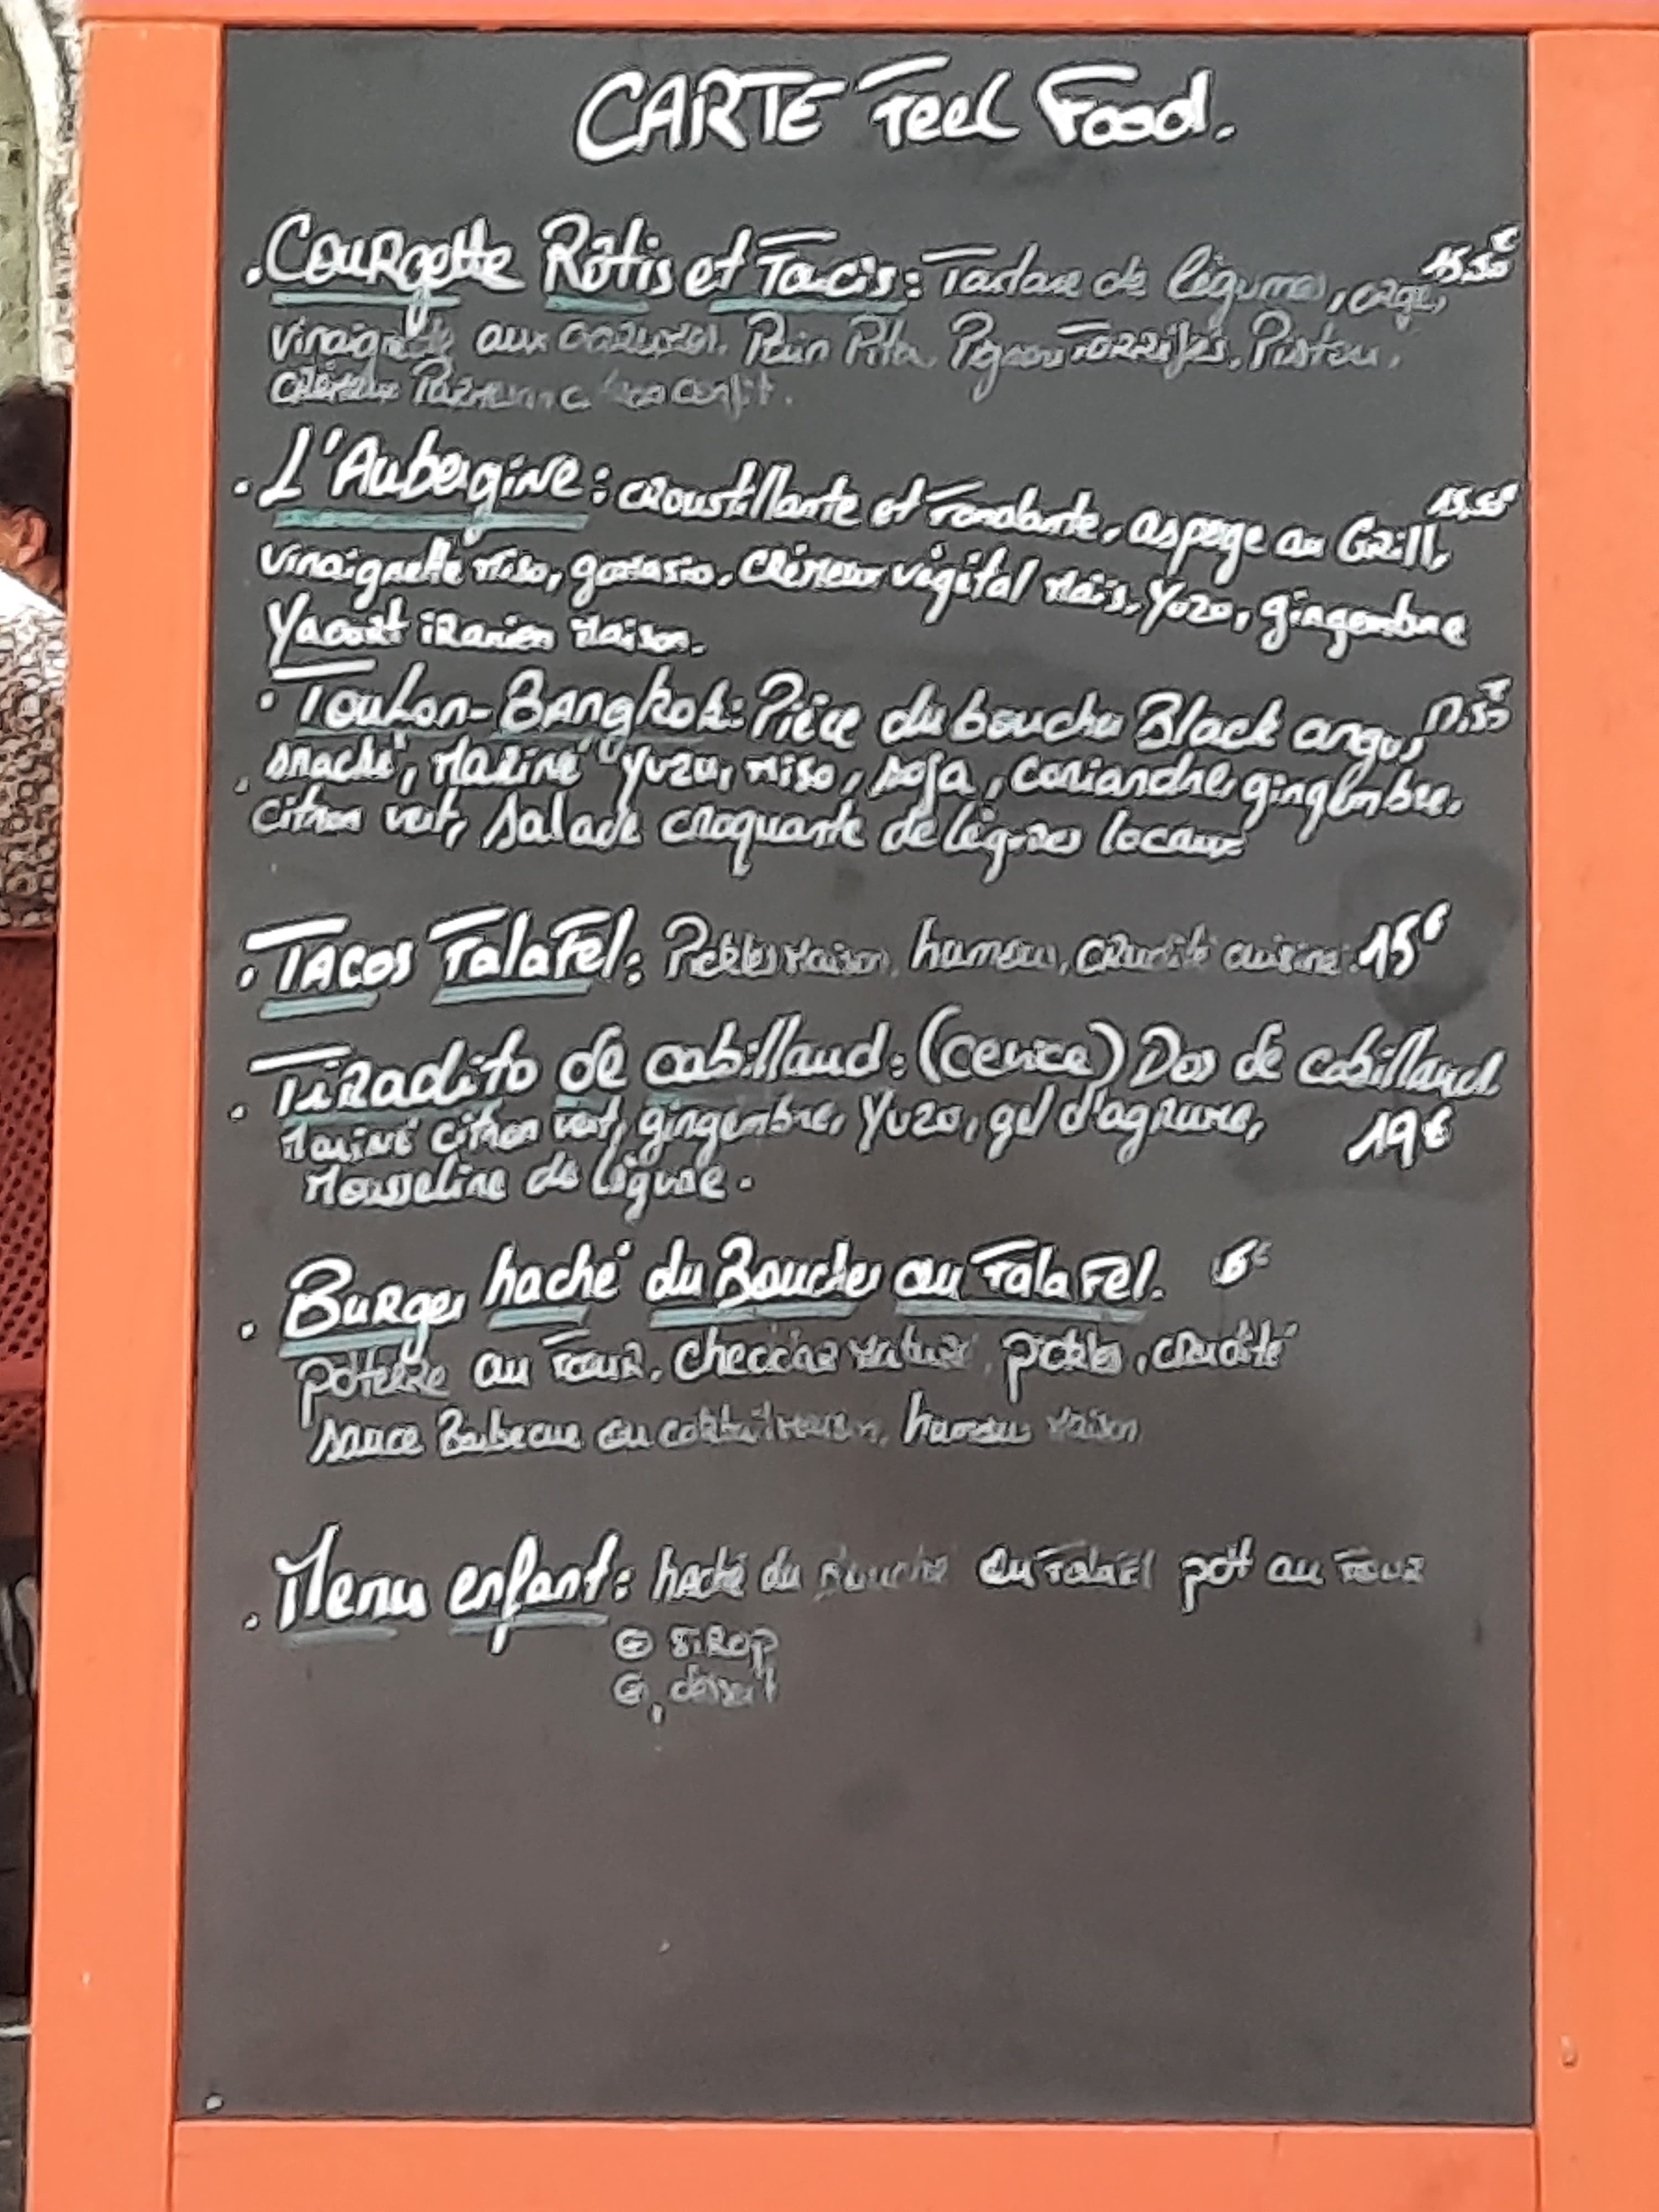 CARTE Feel Food.
.Courgette Rôtis et Tacis: Tartare de légumes, orge, 15,50€
vinaigrette aux Pain Pita, Pignon Torrifies, Pistou,
Crémeux confit.
. L'Aubergine: croustillante et Fondante, asperge au Grill, 15,50€
vinaigrette Miso, gomasio, Crémeux végétal Maïs, Yuzo, gingembre
Yaourt iranien Maison.
. Toulon-Bangkok: Pièce du boucher Black angus
snaché, Mariné yuzu, miso, soja, coriandre, gingembre,
citron vert, salade croquante de légumes locaux
. TACOS FalaFel: Pickles Maison, humous, crudité cuisine. 15€
. Tiradito de cabillaud: (cevice) Dos de cabillaud
Mariné citron vert, gingembre, Yuzo, gel d'agrume, 19€
Mousseline de légume.
. Burger haché du Boucher ou FalaFel.
au Four, pickles, crudité
sauce Barbecue ou humous Maison
. Menu enfant: haché du Boucher ou Falafel pdt au Four
sirop